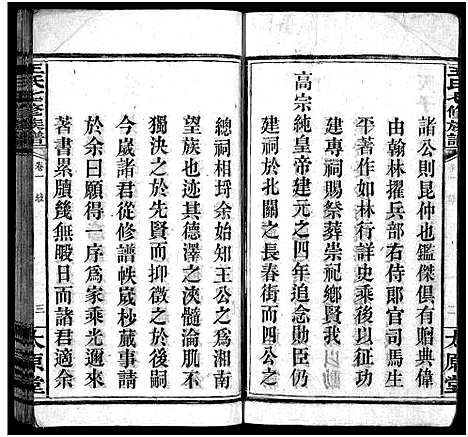 王氏七修族譜
卷一
二
太原堂
諸公則昆仲也鑑傑俱有贈典偉
由翰林擢兵部右侍郎官司馬生
平著作如林行詳史乘後以征功
建專祠賜祭葬崇祀鄉賢我
高宗純皇帝建元之四年追念勛臣仍
建祠於北關之長春街而四公之
總祠相埒余始知王公之爲湘南
望族也迹其德澤之浹髓淪肌不
獨決之於先賢而抑徵之於後嗣
今歲諸君從修譜帙嵗杪蕆事請
於余曰願得一序爲家乘光邇來
著書累牘幾無暇日而諸君適余
王氏七修族譜
卷一
三
太原堂